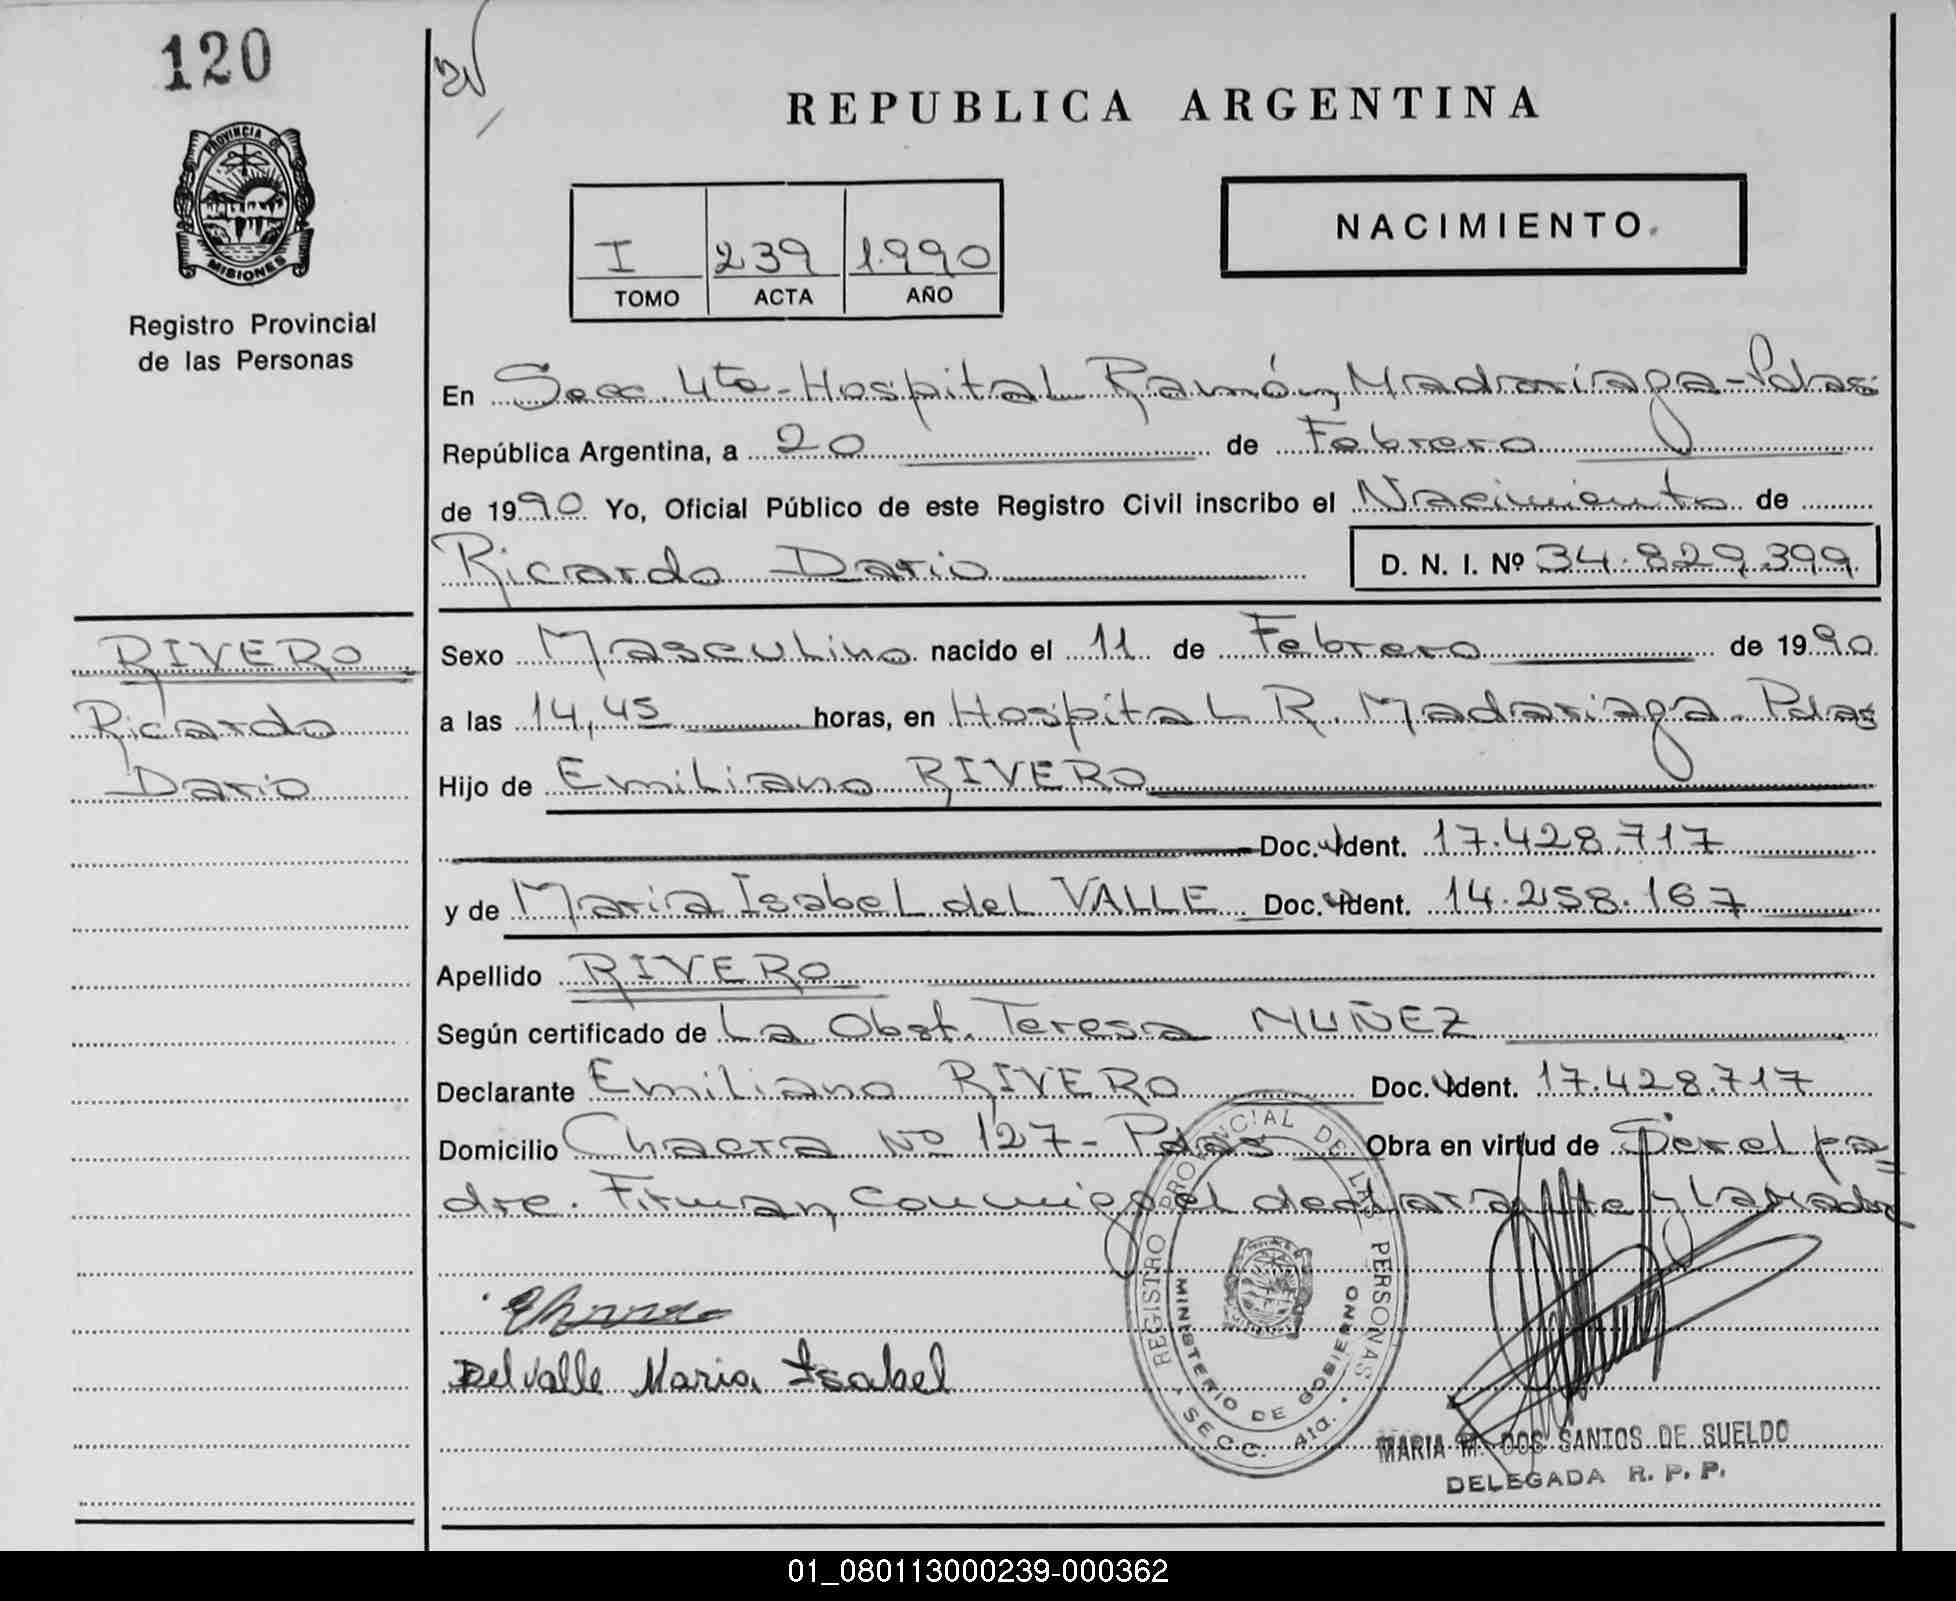 120
REPUBLICA ARGENTINA
PROVINCIA DE
MISIONES
Registro Provincial
de las Personas
NACIMIENTO.
I 239 1.990
TOMO ACTA AÑO
En Secc. 4ta - Hospital Ramón Madariaga - Pdas
República Argentina, a 20 de Febrero
de 1990 Yo, Oficial Público de este Registro Civil inscribo el Nacimiento de
Ricardo Dario D. N. I. Nº 34.829.399
RIVERO
Ricardo
Dario
Sexo Masculino nacido el 11 de Febrero de 1990
a las 14,45 horas, en Hospital R. Madariaga - Pdas
Hijo de Emiliano RIVERO
Doc. Ident. 17.428.717
y de Maria Isabel del VALLE Doc. Ident. 14.258.167
Apellido RIVERO
Según certificado de La Obst. Teresa NUÑEZ
Declarante Emiliano RIVERO Doc. Ident. 17.428.717
Domicilio Chacra Nº 127 - Pdas Obra en virtud de Ser el pa=
dre. Firman conmigo el declarante y la madre
Del valle Maria Isabel
REGISTRO PROVINCIAL DE LAS PERSONAS
MINISTERIO DE GOBIERNO
SECC. 4ta.
MARIA M. DOS SANTOS DE SUELDO
DELEGADA R. P. P.
01_080113000239-000362